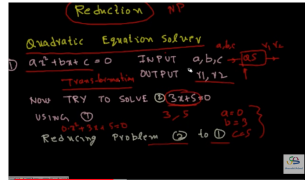 Reduction NP
Quadratic Equation Solver
① ax²+bx+c=0 INPUT a,b,c
a,b,c QS r1,r2
Transformation OUTPUT r1,r2
NOW TRY TO SOLVE ② 3x+5=0
USING ① 3,5 a=0
0·x²+3x+5=0 b=3
Reducing Problem ② to ① C=5